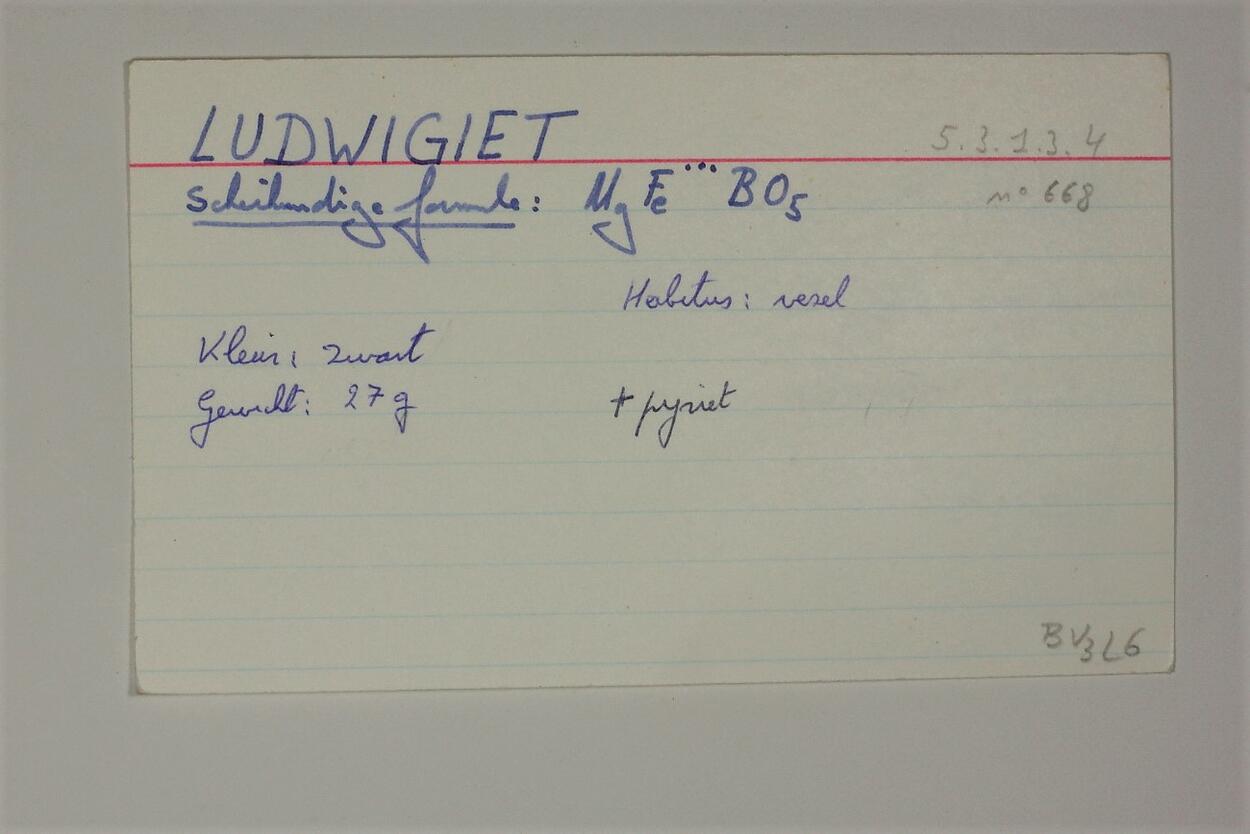 LUDWIGIET 5.3.1.3.4
Scheikundige formule: MgFe··· BO5 n° 668
Habitus: vezel
Kleur: zwart
Gewicht: 27 g + pyriet
B V3 L6